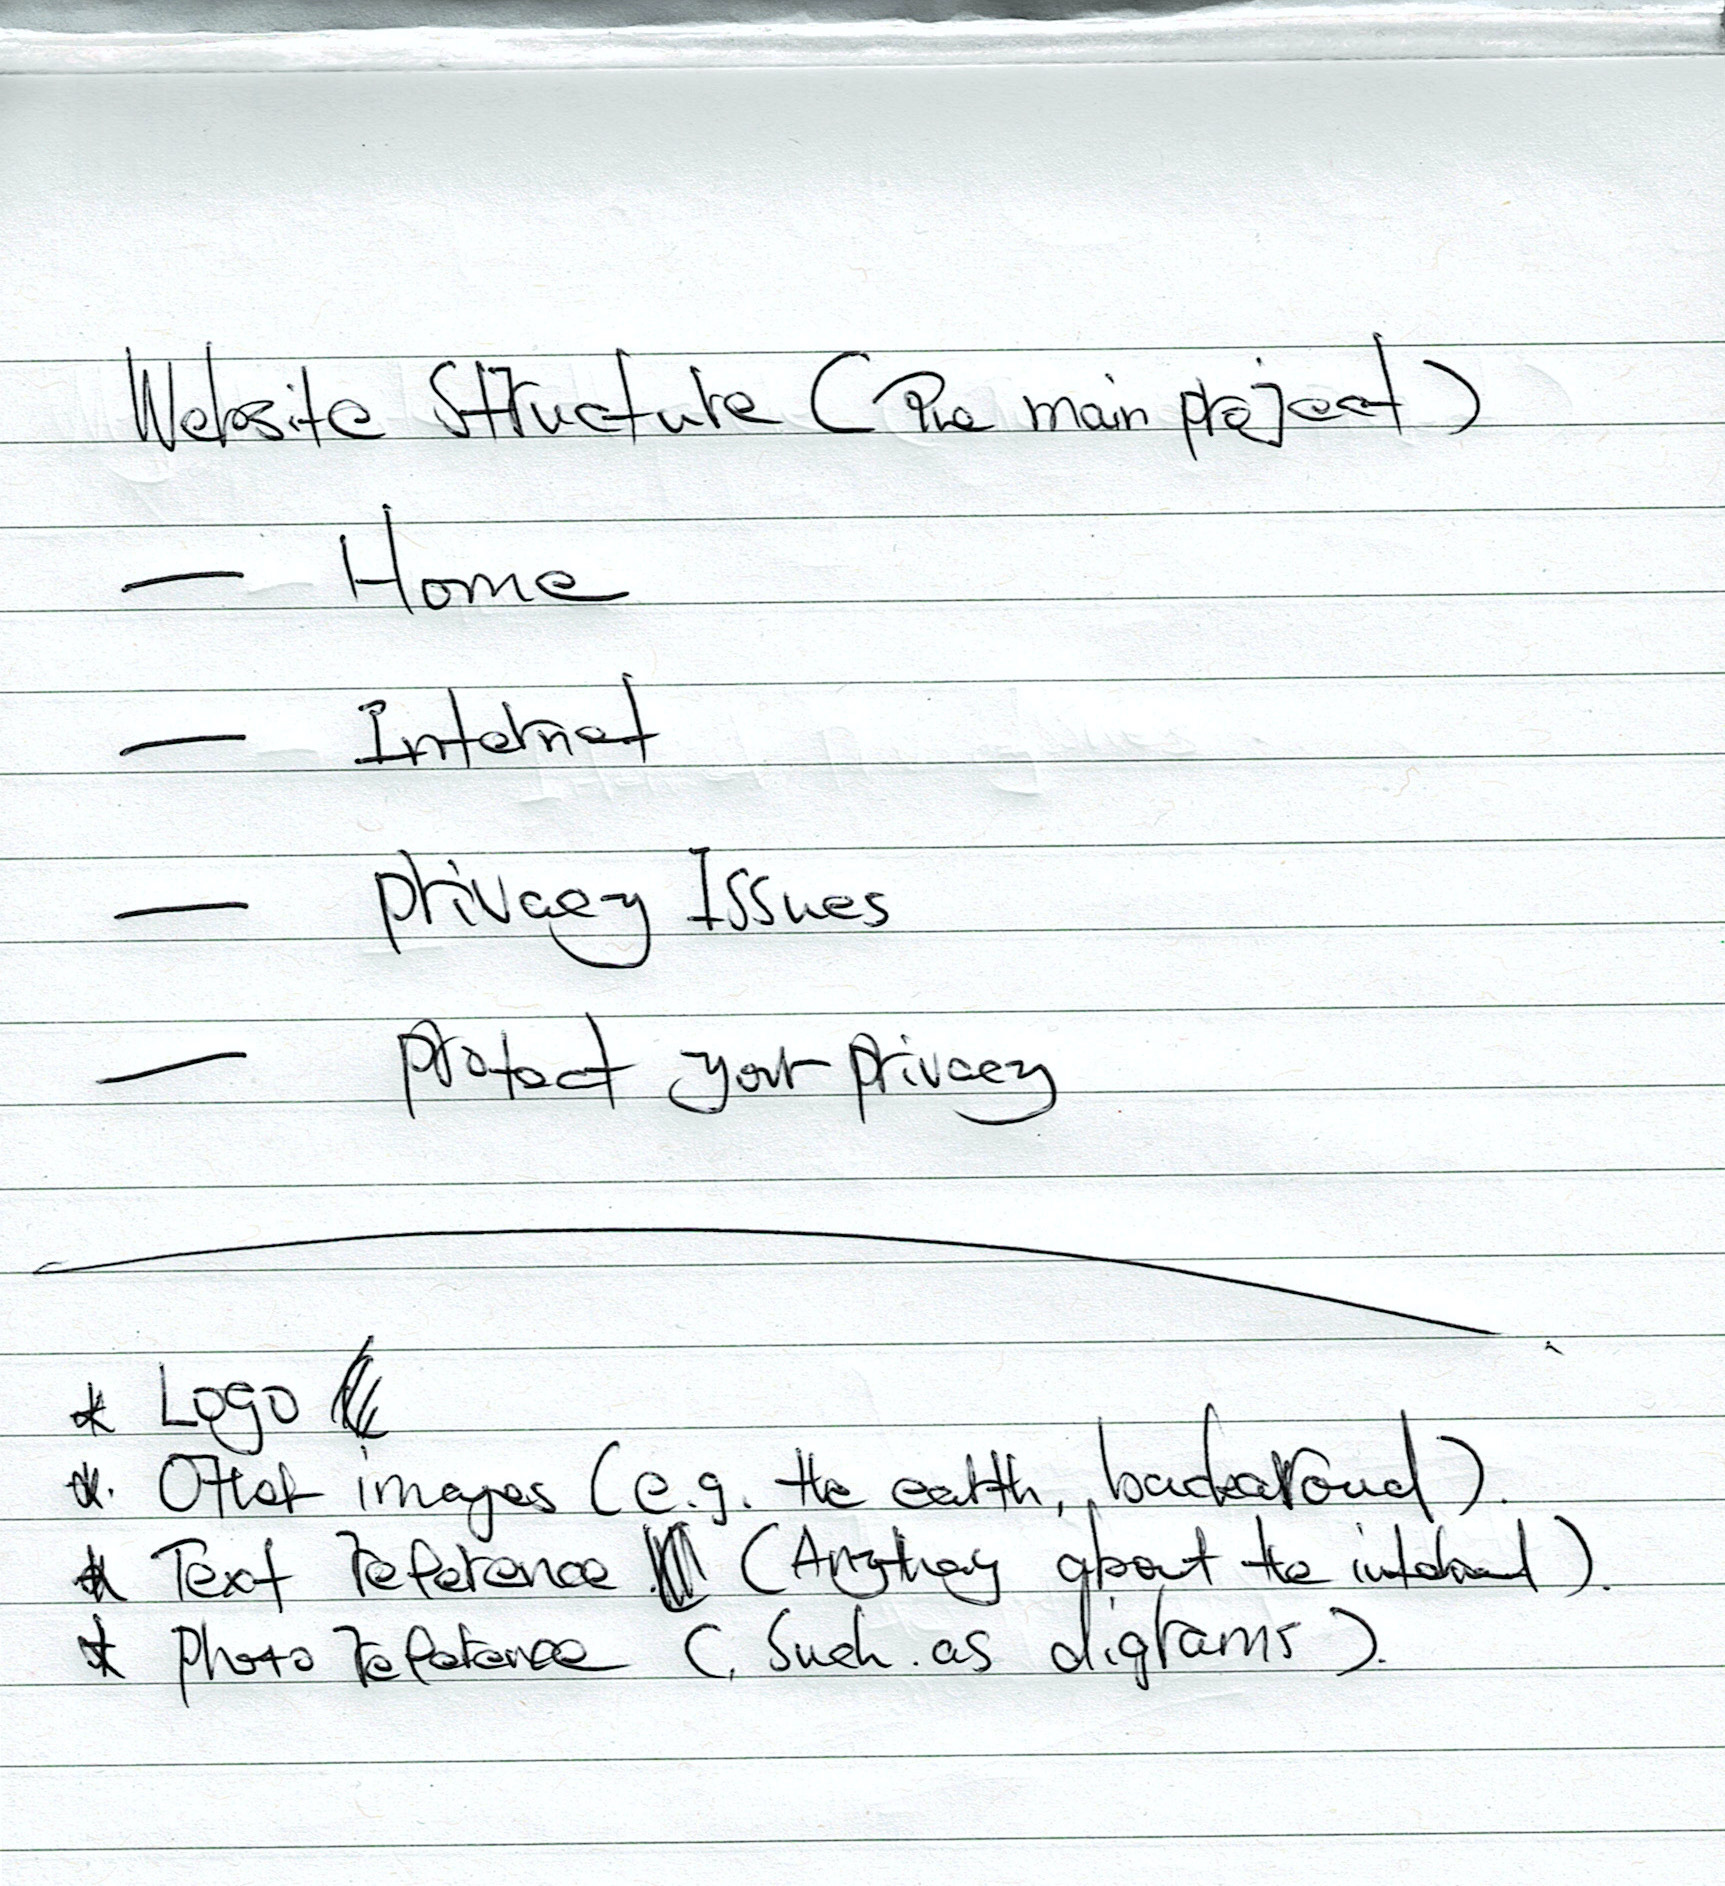 Website Structure (The main project)
— Home
— Internet
— privacy Issues
— protect your privacy
* Logo
* Other images (e.g. the earth, backgroud).
* Text reference (Anythay about the internet).
* photo reference (such as digrams).